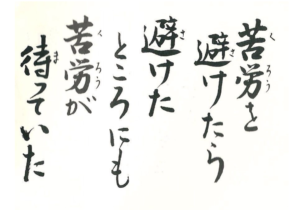 苦労を
避けたら
避けた
ところにも
苦労が
待っていた